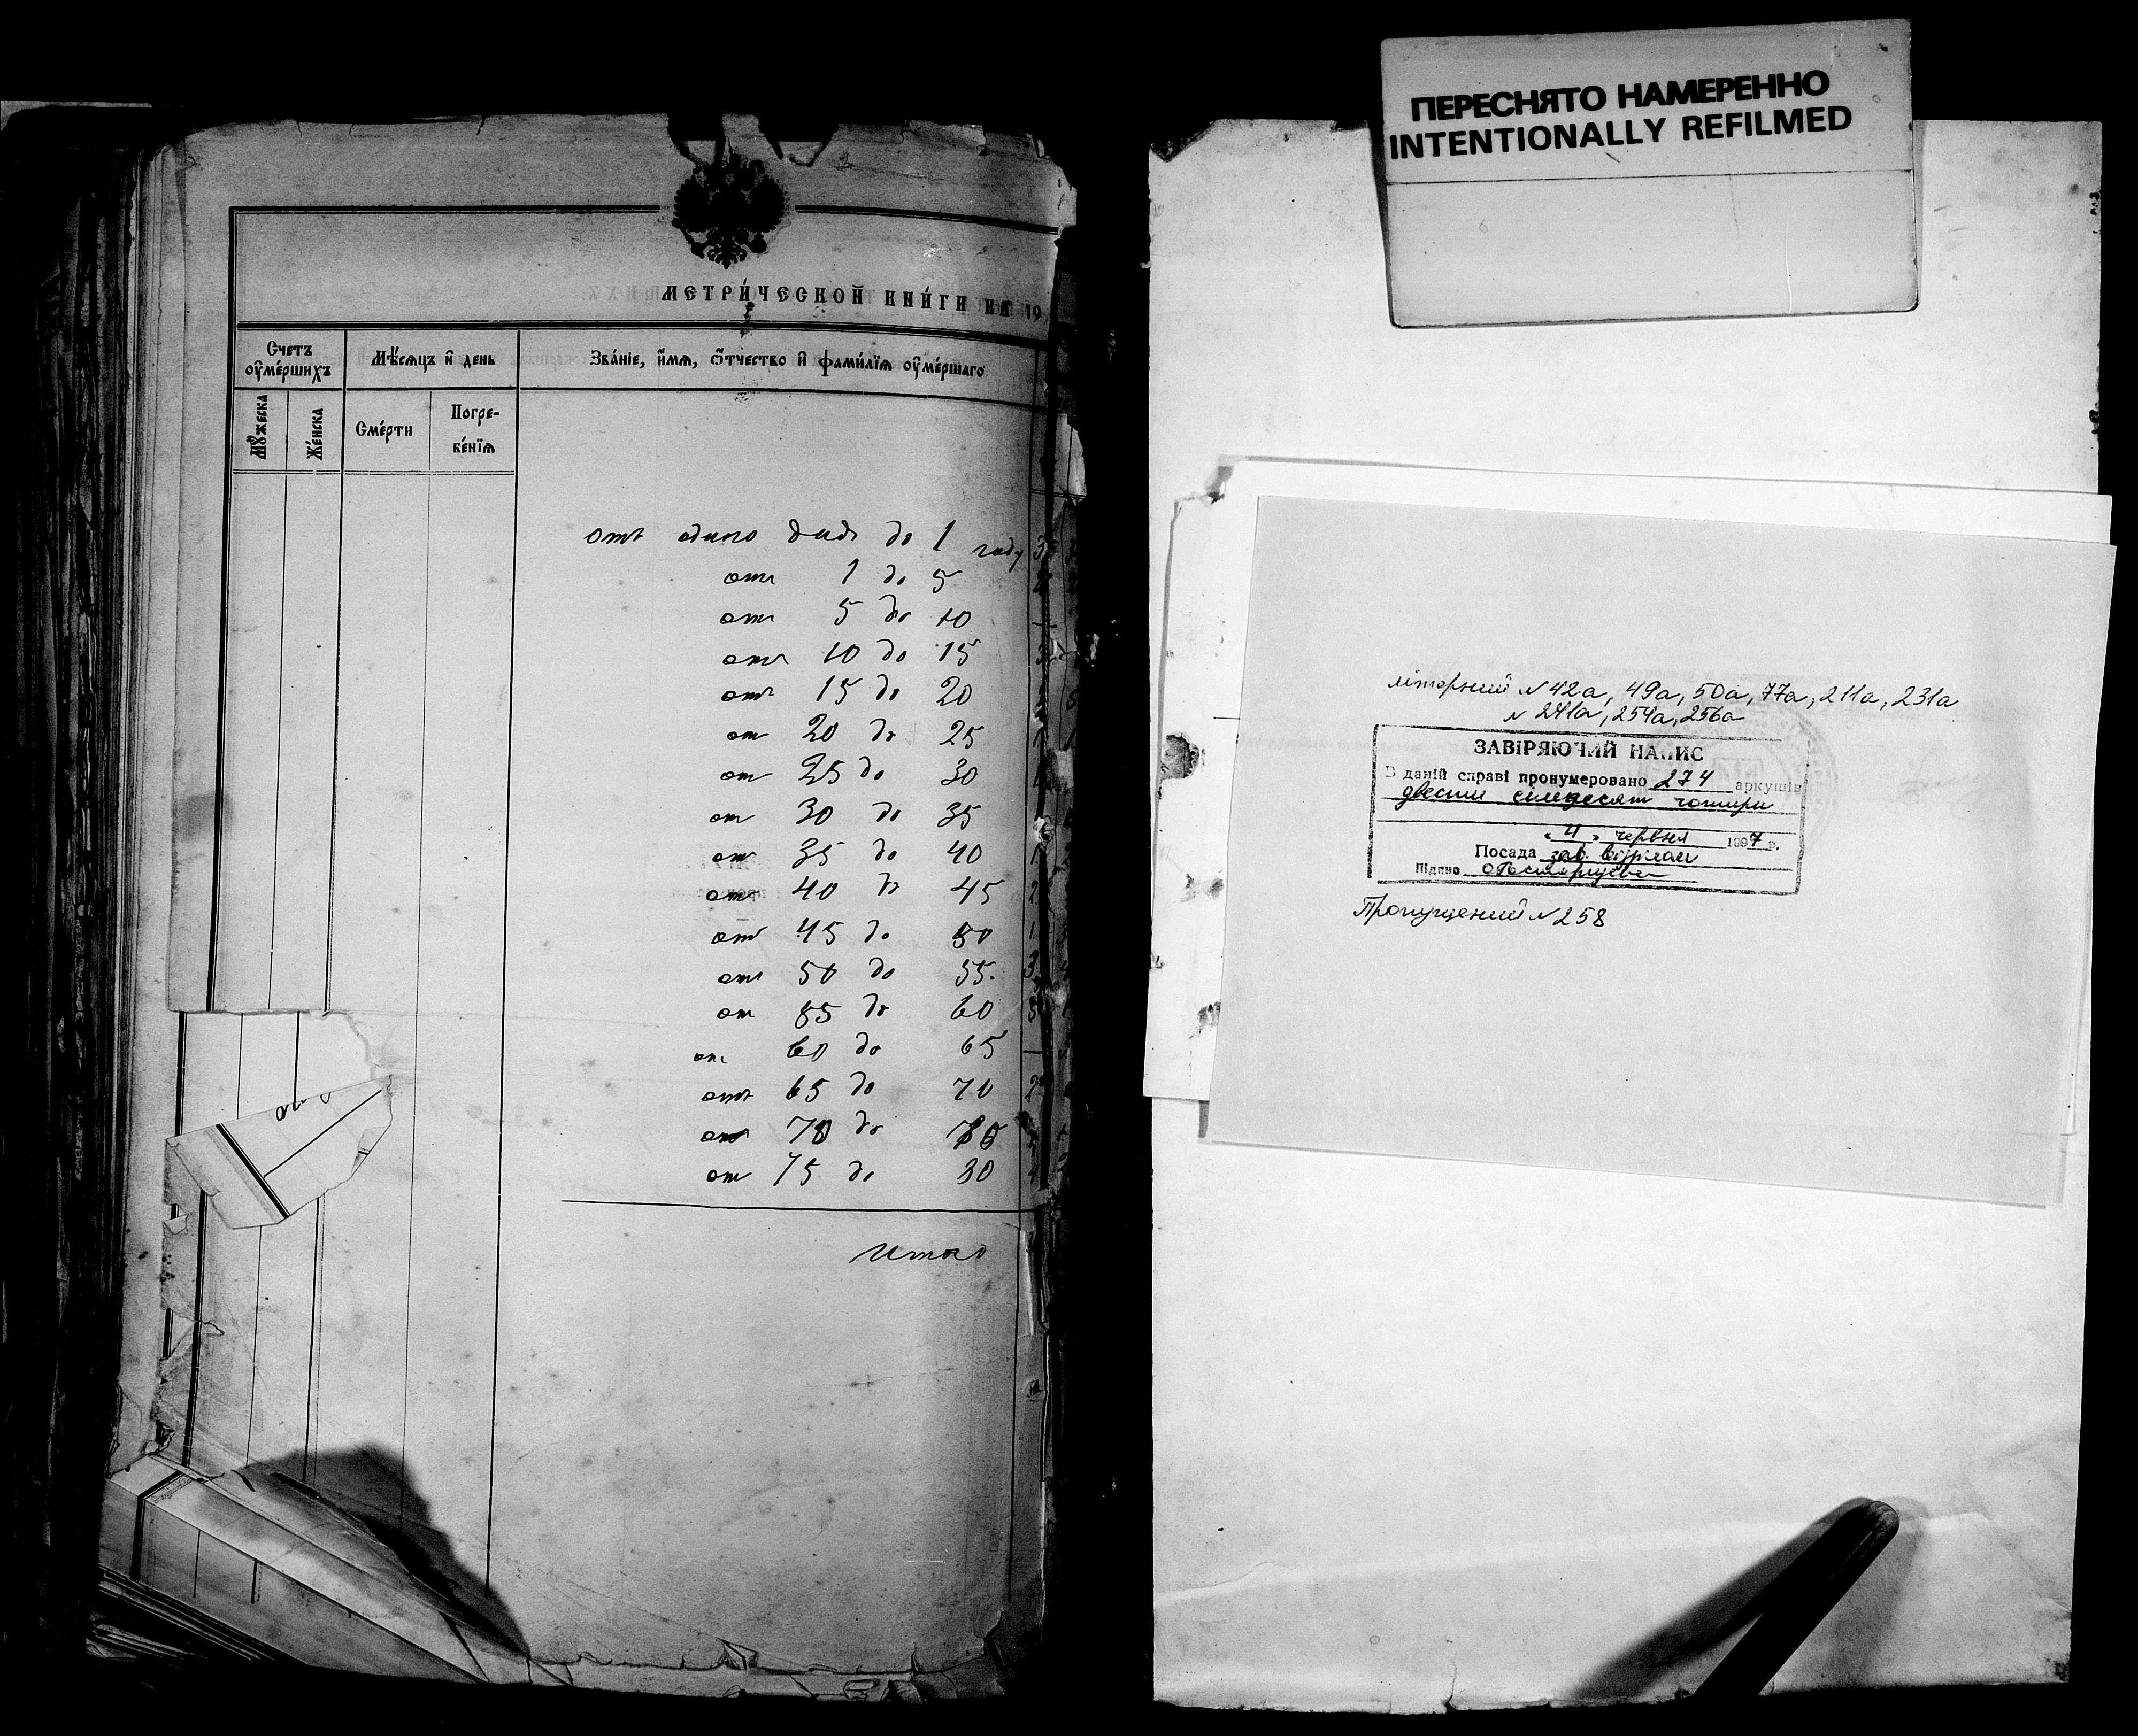 МЕТРИ́ЧЕСКОЙ КНИ́ГИ НА 19
Счетъ ᲂу҆ме́ршихъ
Мѣсяцъ и҆ день
Зва́нїе, и҆́мѧ, ѻ҆́тчество и҆ фами́лїѧ ᲂу҆ме́ршагѡ
Мꙋ́жеска
Же́нска
Сме́рти
Погре-
бе́нїѧ
отъ одного дня до 1 году 3
отъ 1 до 5
отъ 5 до 10 —
отъ 10 до 15 3
отъ 15 до 20
от 20 до 25 1
от 25 до 30 1
от 30 до 35
от 35 до 40 1
от 40 до 45 2
от 45 до 50 1
от 50 до 55. 3
от 55 до 60 3
от 60 до 65 —
отъ 65 до 70 2
от 70 до 75
от 75 до 80
Итого
ПЕРЕСНЯТО НАМЕРЕННО
INTENTIONALLY REFILMED
літерний № 42а, 49а, 50а, 77а, 211а, 231а
№ 241а, 254а, 256а
ЗАВІРЯЮЧИЙ НАПИС
В даній справі пронумеровано 274 аркушів
двести сімдесят чотири
"4" червня 1997 р.
Посада зав. відділом
Підпис
Пропущений № 258